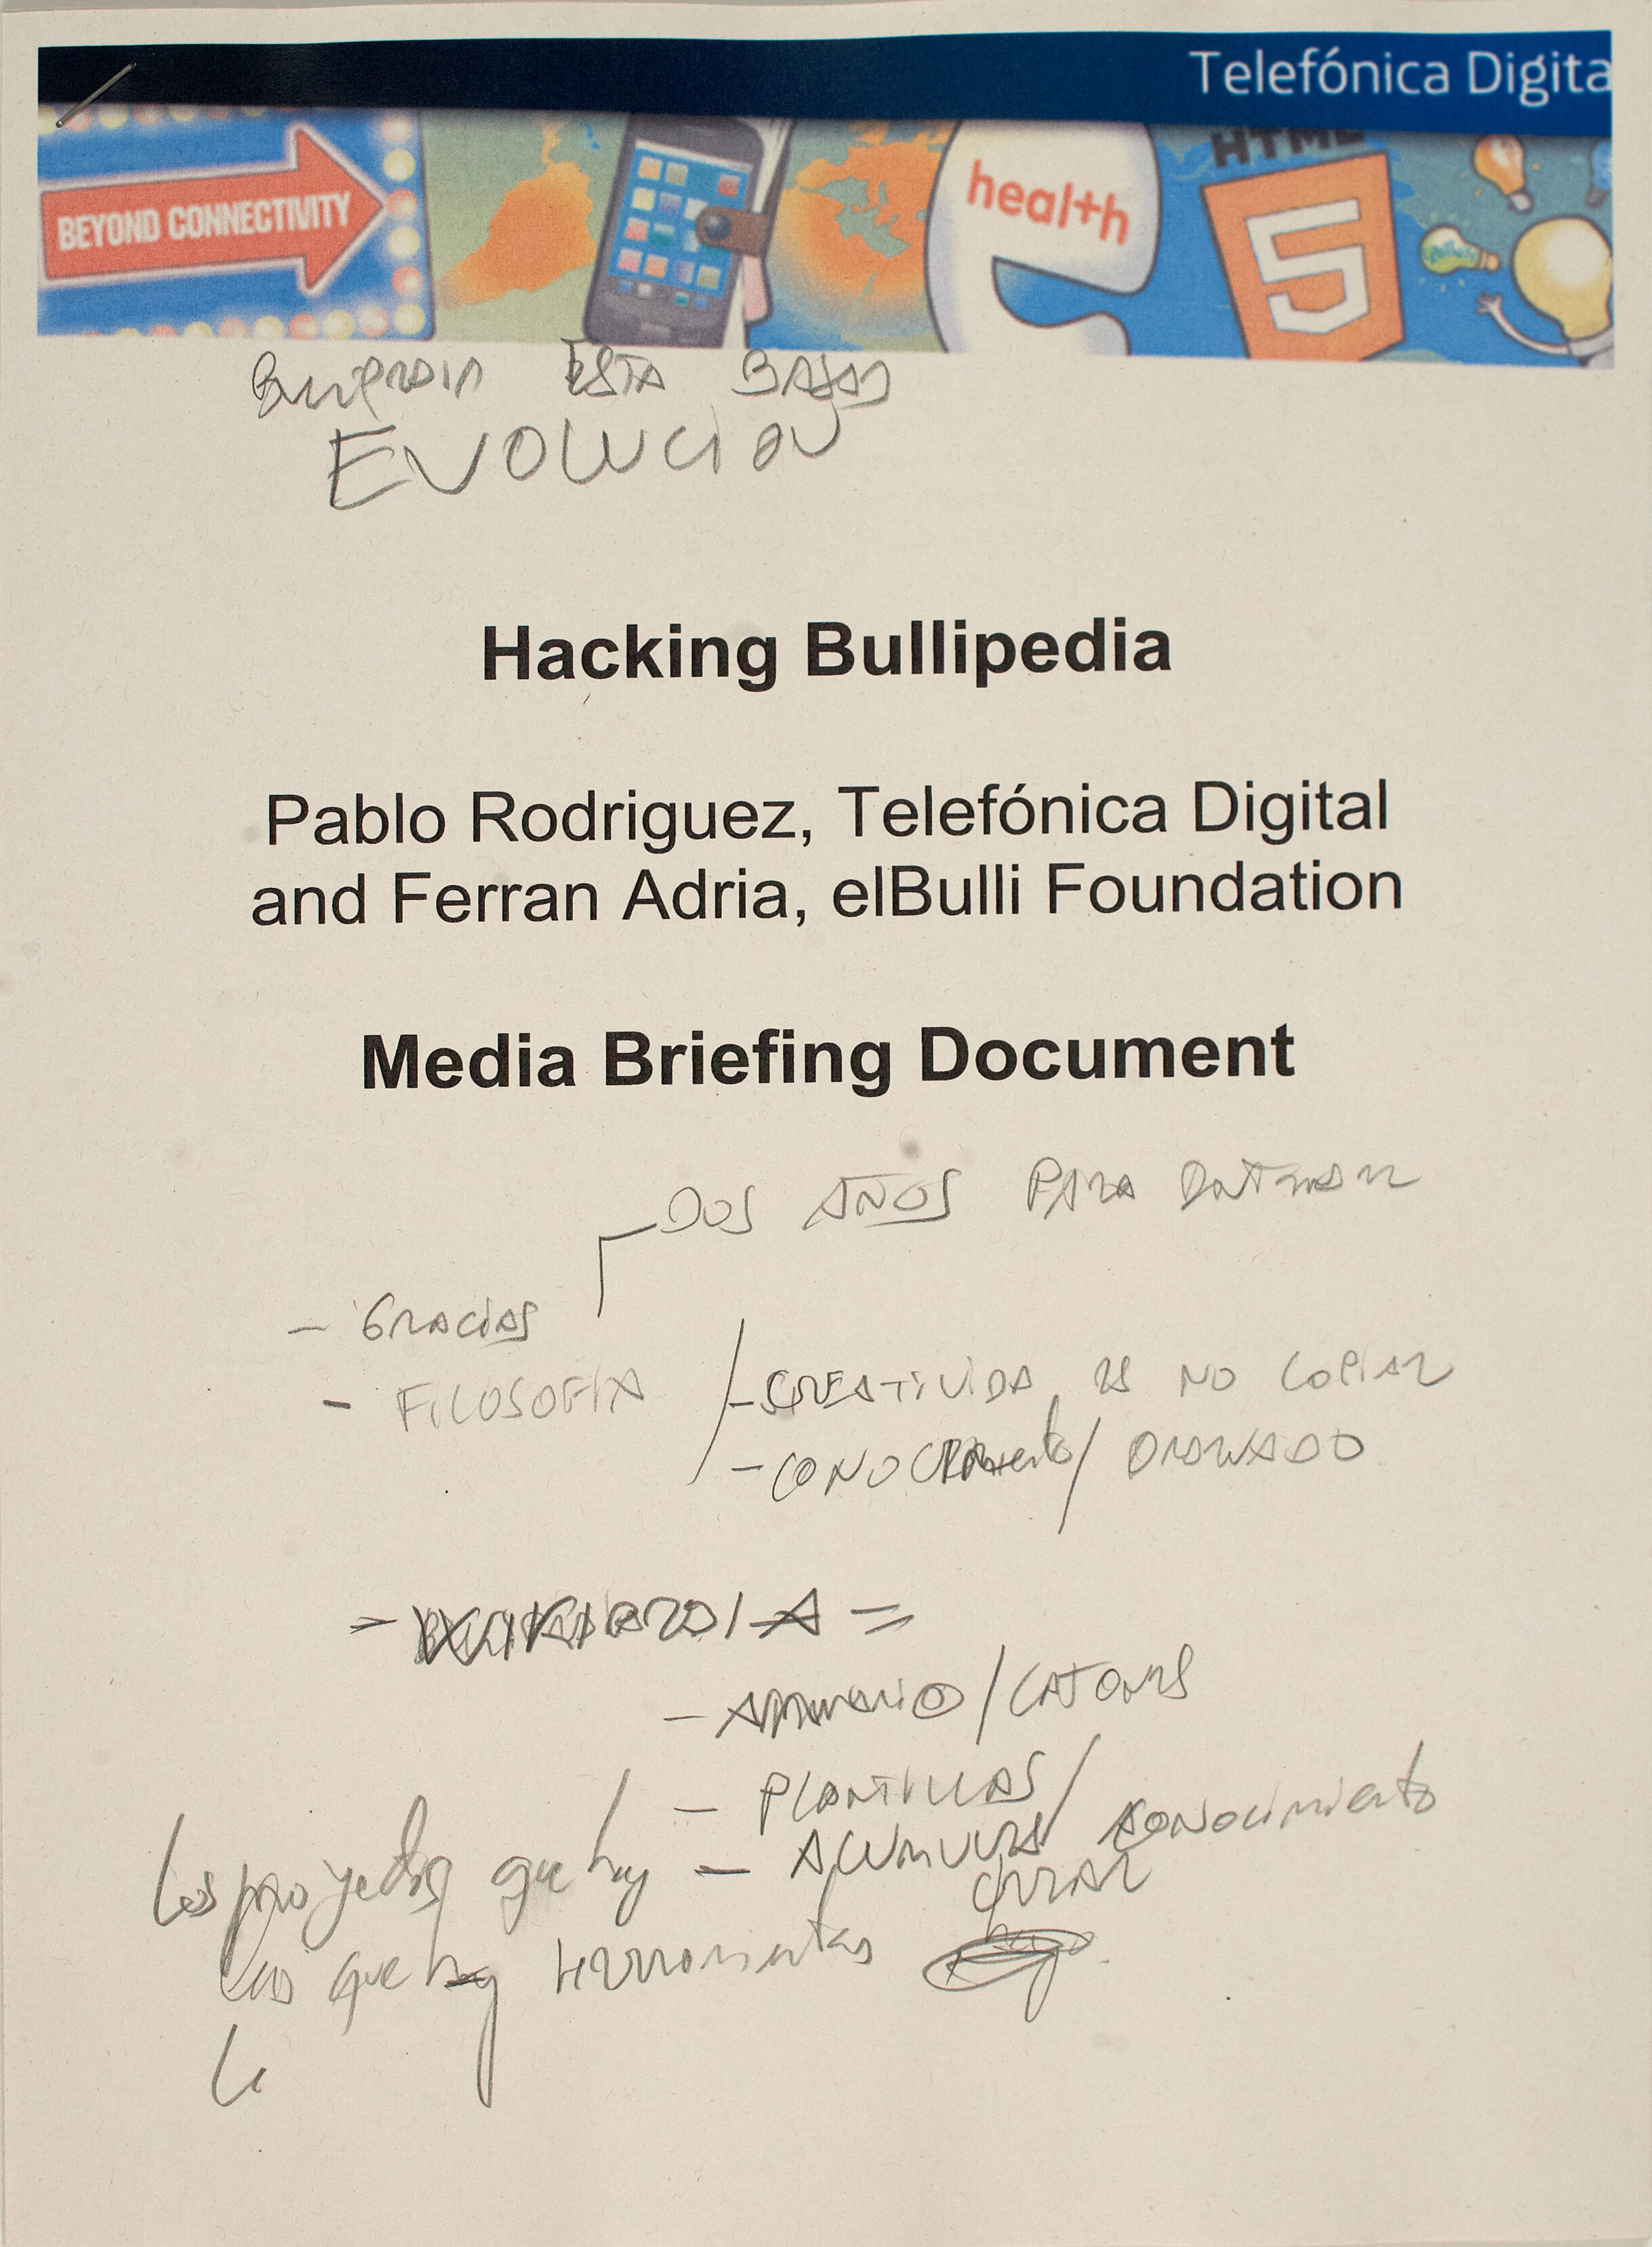 Telefónica Digita
BEYOND CONNECTIVITY
health
HTML
5
ESTA
EVOLUCION
Hacking Bullipedia
Pablo Rodriguez, Telefónica Digital
and Ferran Adria, elBulli Foundation
Media Briefing Document
DOS AÑOS PARA
- GRACIAS
- FILOSOFIA / - CREATIVIDA ES NO COPIAR
- CONOCIMiento /
-
- PLANTILLAS /
- conocimiento
Los proyectos que hay
Las que hay Herramientas